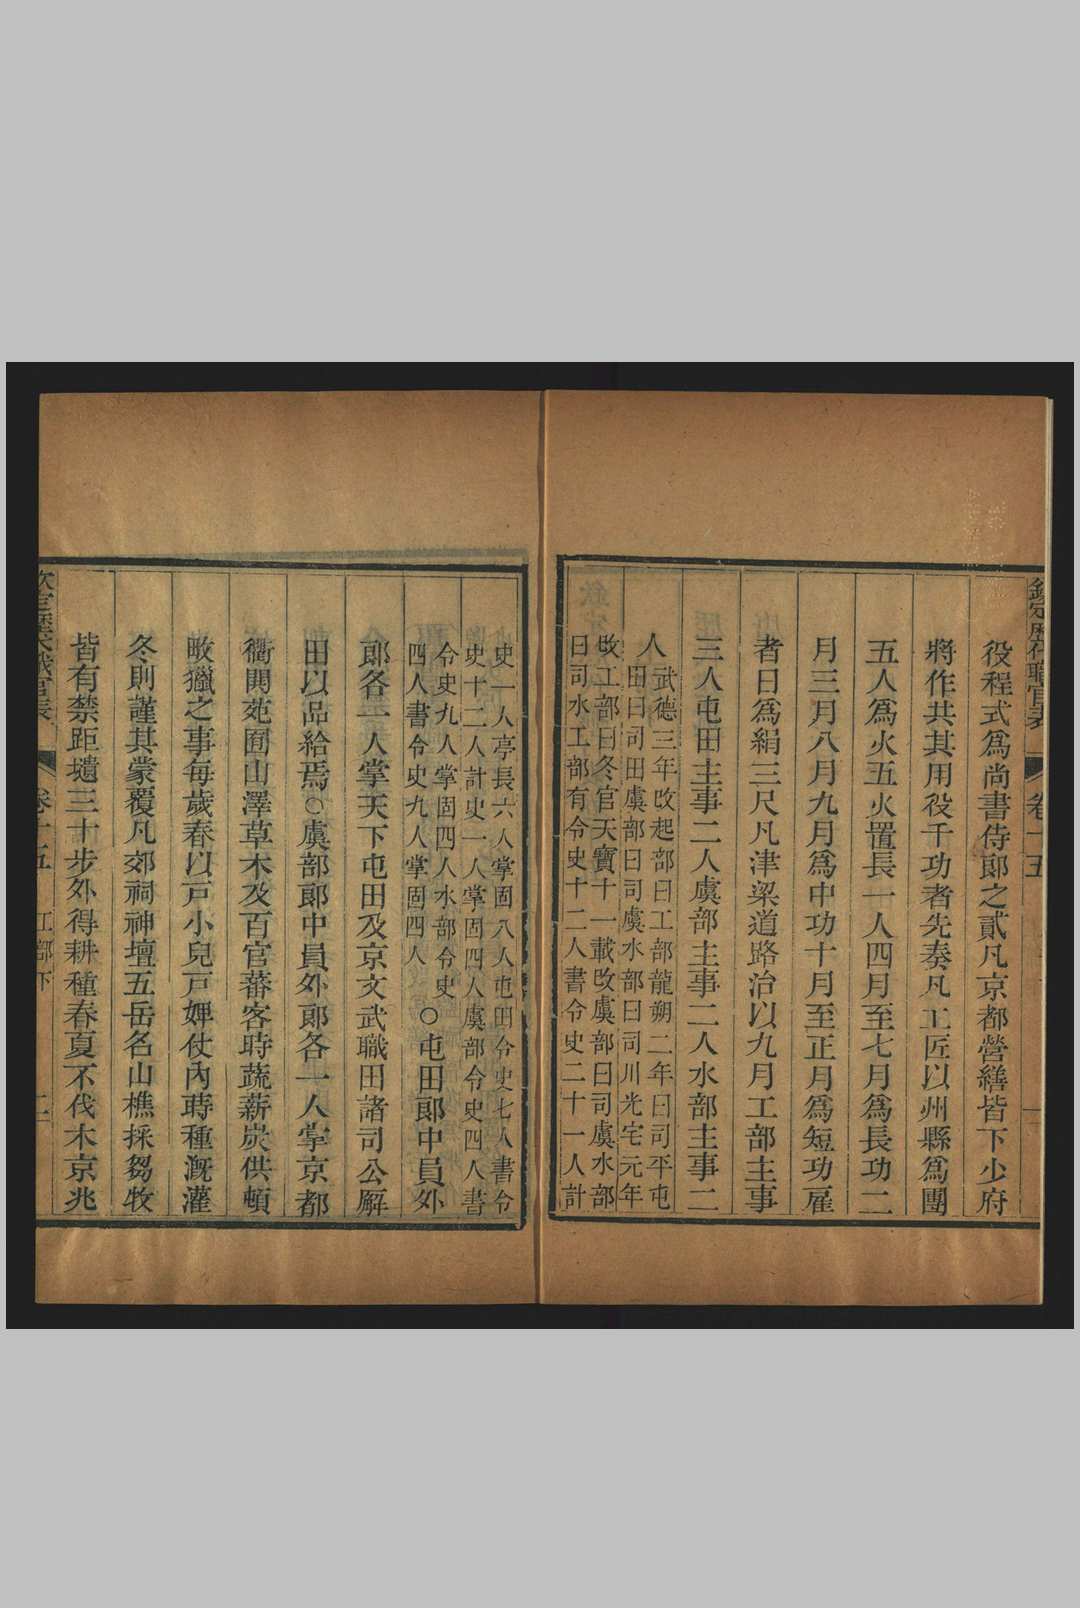 欽定歷代職官表 卷十五
役程式爲尚書侍郎之貳凡京都營繕皆下少府
將作共其用役千功者先奏凡工匠以州縣爲團
五人爲火五火置長一人四月至七月爲長功二
月三月八月九月爲中功十月至正月爲短功雇
者日爲絹三尺凡津梁道路治以九月工部主事
三人屯田主事二人虞部主事二人水部主事二
人
武德三年改起部曰工部龍朔二年曰司平屯
田曰司田虞部曰司虞水部曰司川光宅元年
改工部曰冬官天寶十一載改虞部曰司虞水部
曰司水工部有令史十二人書令史二十一人計
史一人亭長六人掌固八人屯田令史七人書令
史十二人計史一人掌固四人虞部令史四人書
令史九人掌固四人水部令史
四人書令史九人掌固四人
○屯田郎中員外
郎各一人掌天下屯田及京文武職田諸司公廨
田以品給焉○虞部郎中員外郎各一人掌京都
衢閧苑囿山澤草木及百官蕃客時蔬薪炭供頓
畋獵之事每歲春以戸小兒戸婢仗內蒔種溉灌
冬則謹其蒙覆凡郊祠神壇五岳名山樵採芻牧
皆有禁距壝三十步外得耕種春夏不伐木京兆
欽定歷代職官表 卷十五 工部下 二